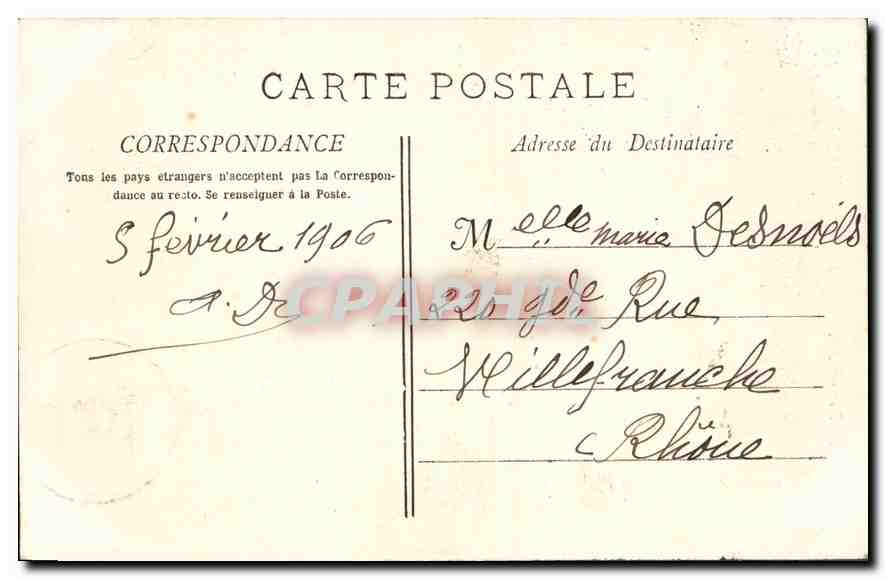 CARTE POSTALE
CORRESPONDANCE
Tous les pays étrangers n'acceptent pas La Correspon-
dance au recto. Se renseigner à la Poste.
5 février 1906
A. D
Adresse du Destinataire
Melle marie Desnoëls
220 gde Rue
Villefranche
Rhône
CPAPHIL